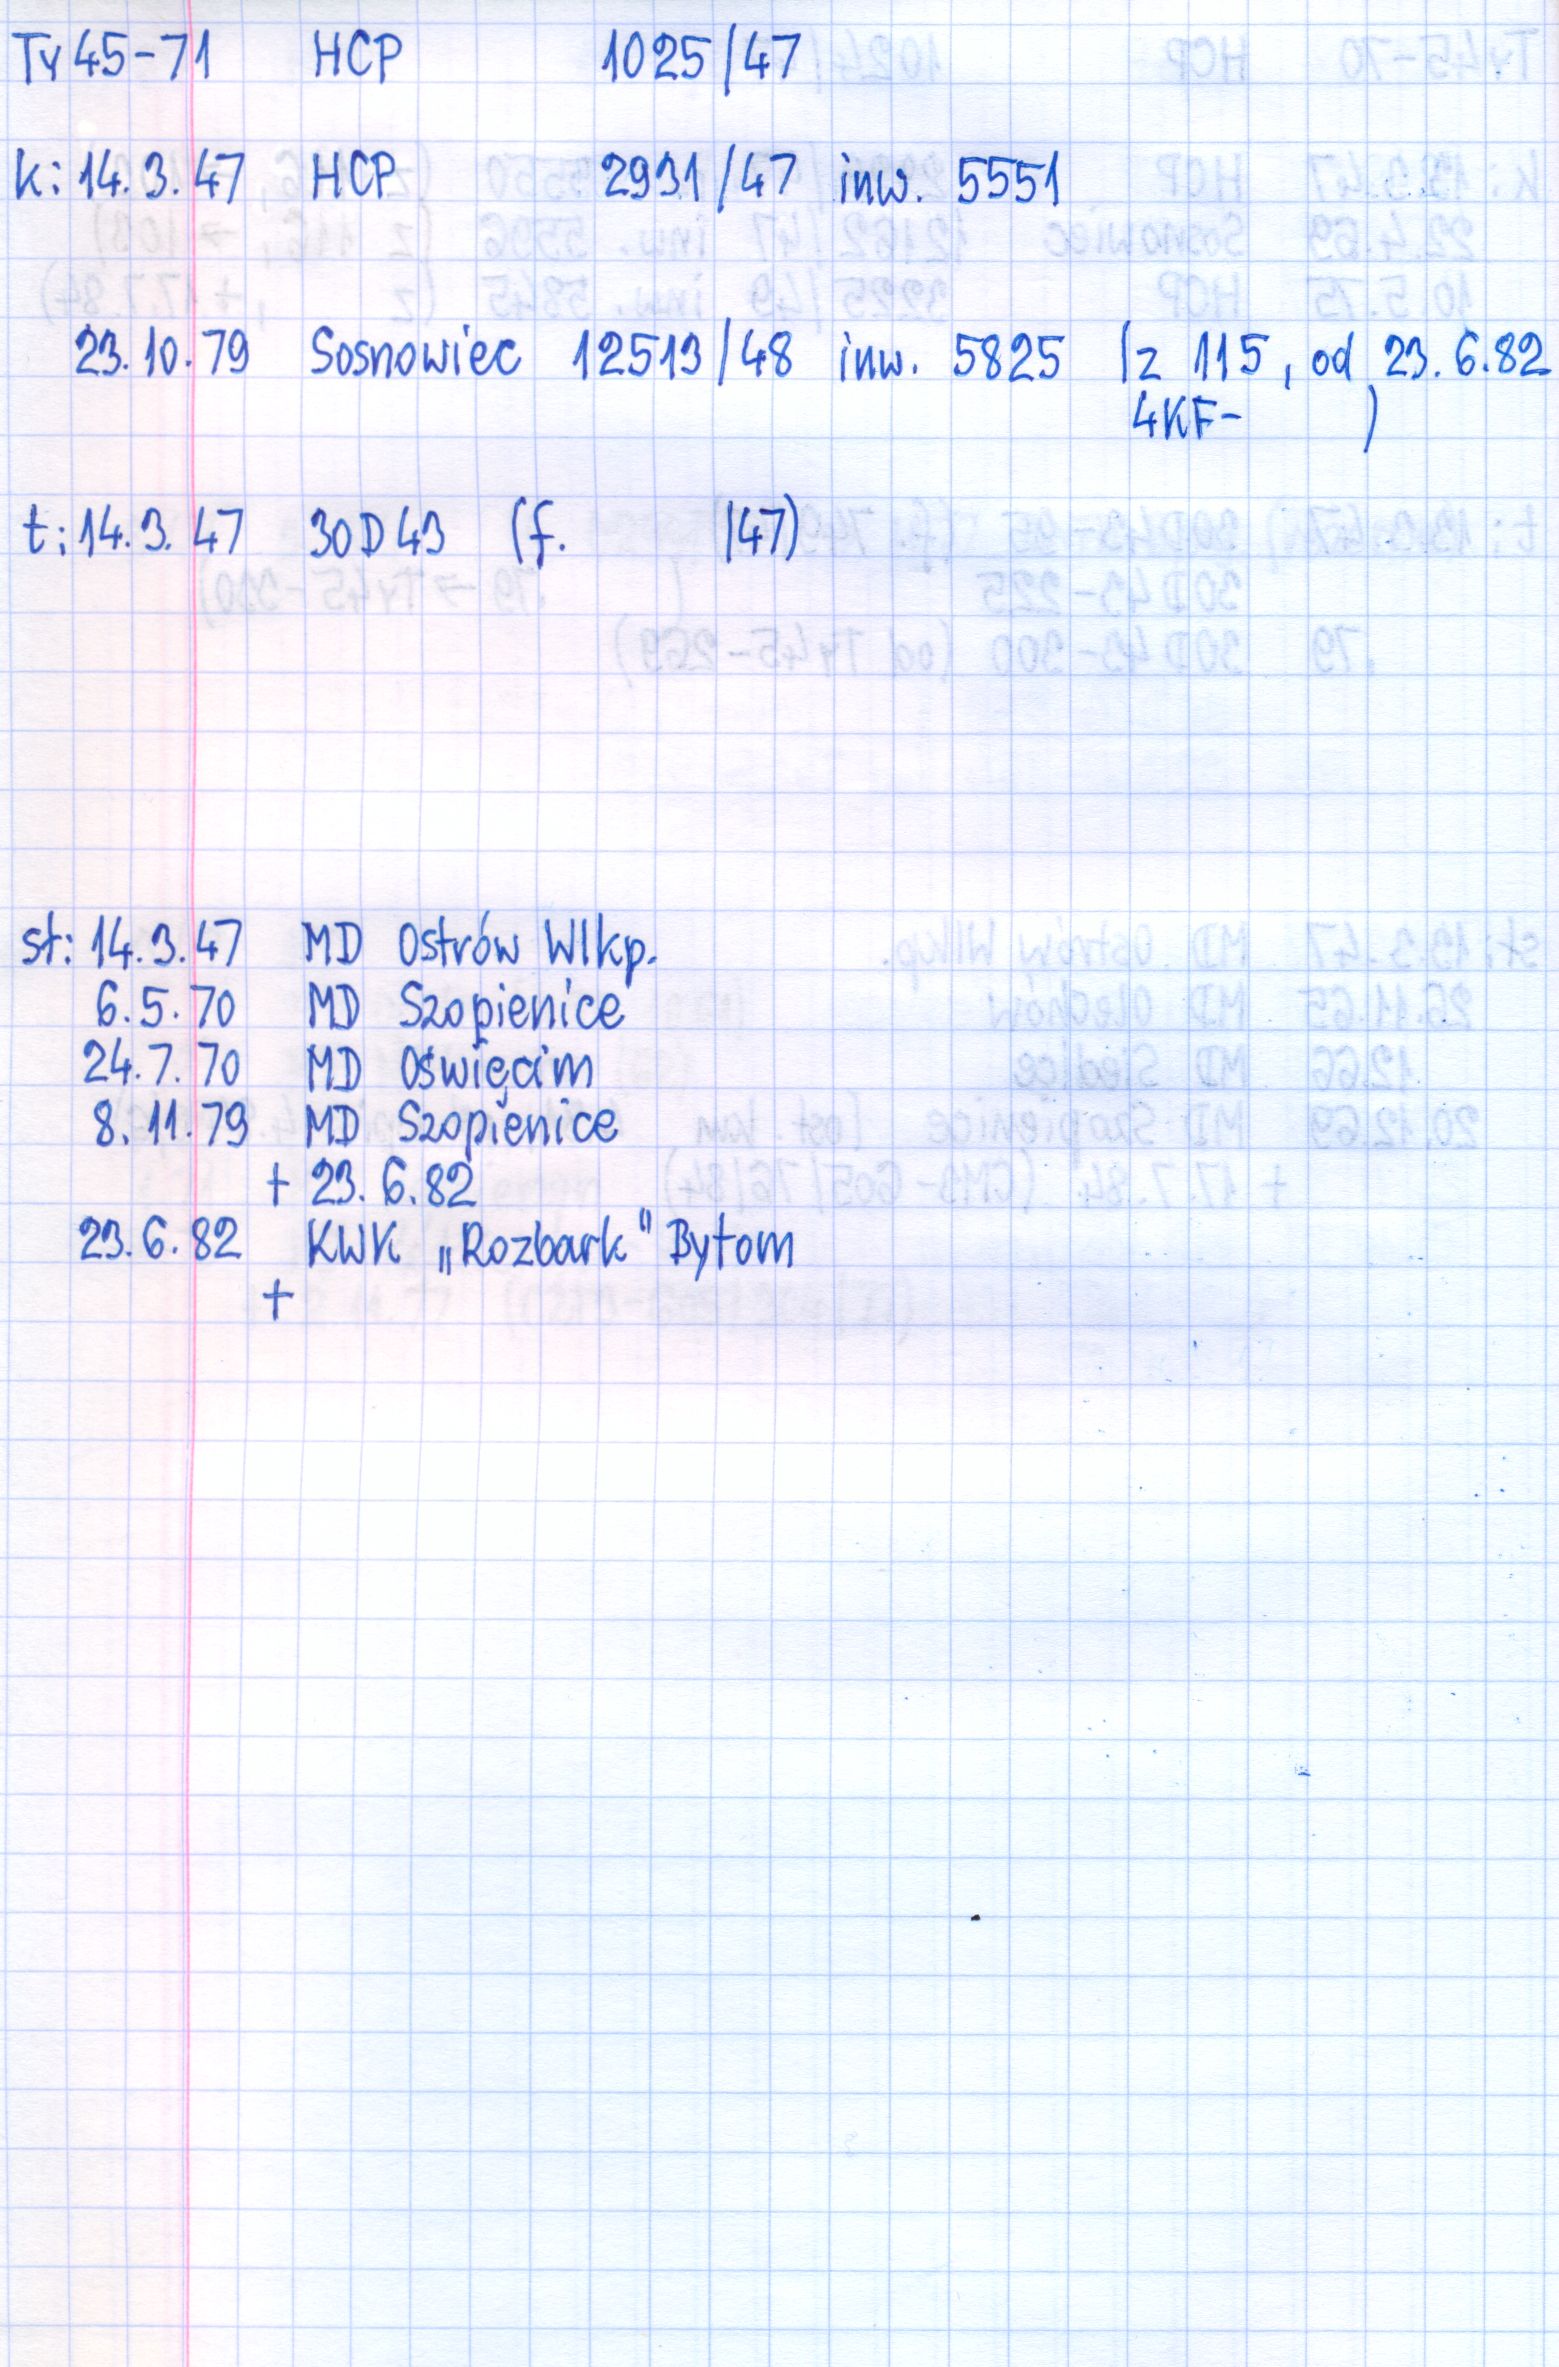 Ty45-71 HCP 1025/47
k: 14.3.47 HCP 2931/47 inw. 5551
23.10.79 Sosnowiec 12513/48 inw. 5825 (z 115, od 23.6.82
4KF- )
t: 14.3.47 30D43 (f. /47)
st: 14.3.47 MD Ostrów Wlkp.
6.5.70 MD Szopienice
24.7.70 MD Oświęcim
8.11.79 MD Szopienice
+ 23.6.82
23.6.82 KWK „Rozbark" Bytom
+